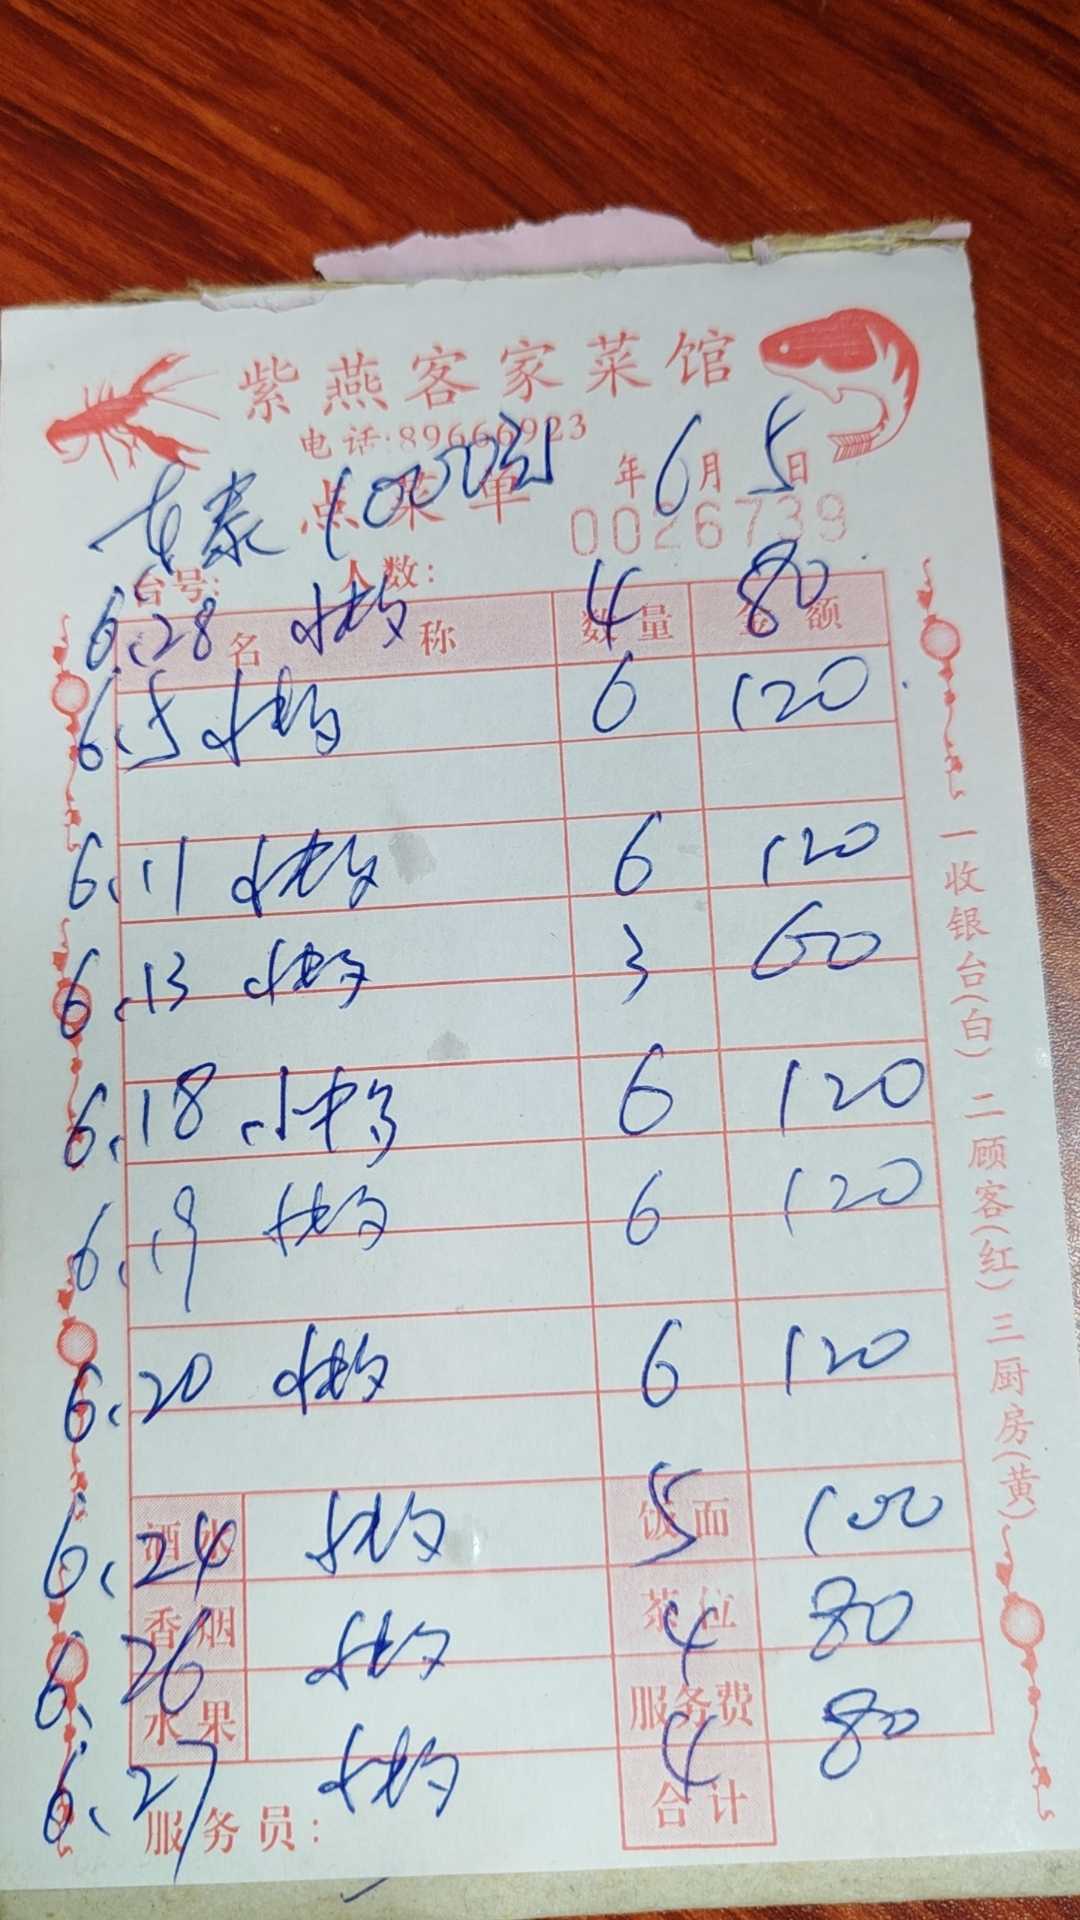 紫燕客家菜馆
电话:89666923
点菜单 年6月5日
0026739
台号: 人数:
6.28 4 80
名 称 数量 金额
6.5 6 120
6.11 6 120
6.13 3 60
6.18 6 120
6.19 6 120
6.20 6 120
酒水 6.24 饭面 5 100
香烟 6.26 茶位 4 80
水果 服务费
6.27 4 80
合计
服务员:
一收银台(白) 二顾客(红) 三厨房(黄)